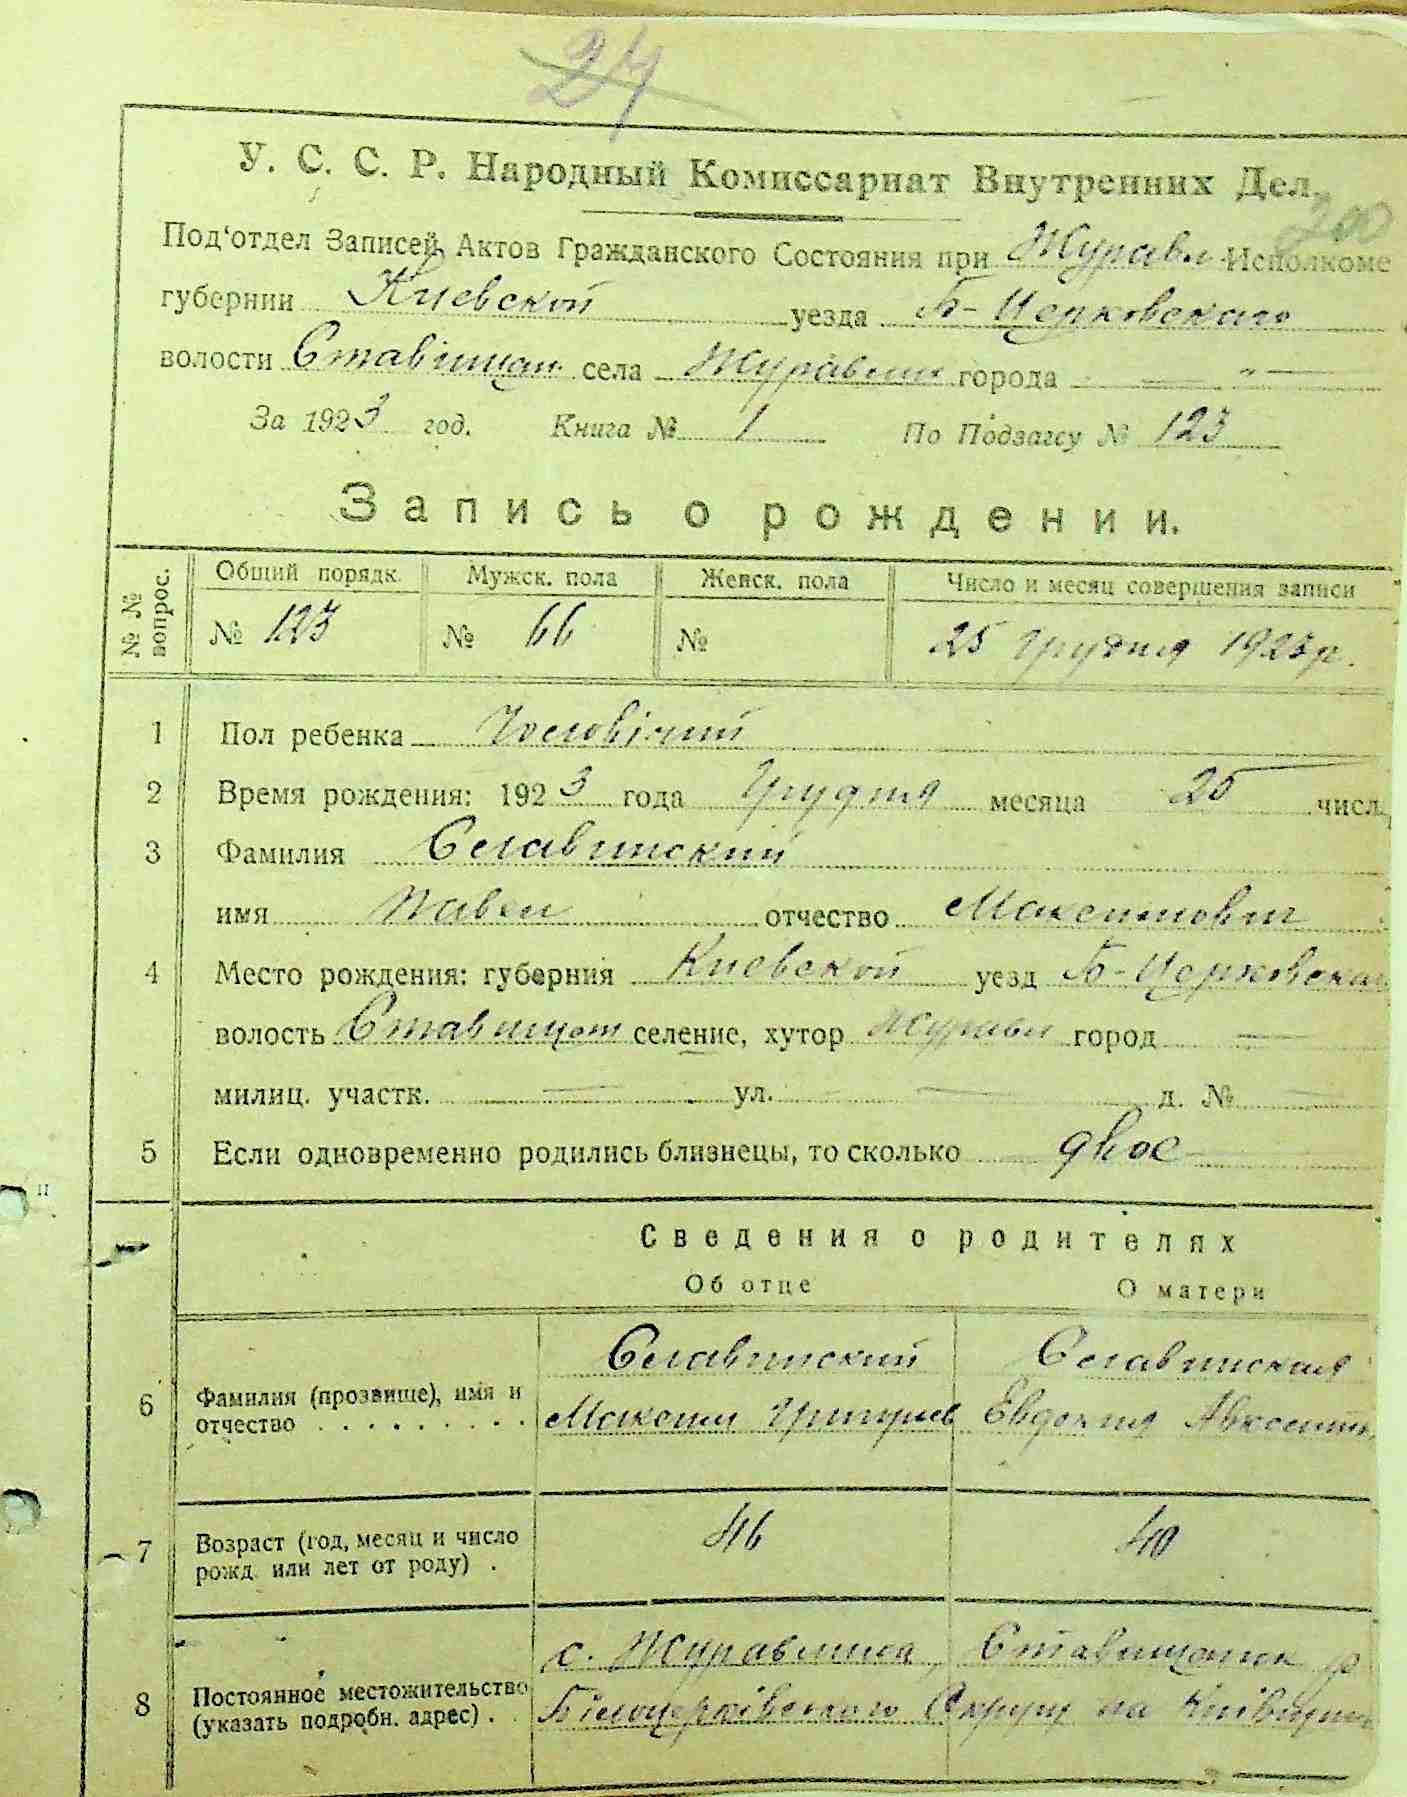 24
У. С. С. Р. Народный Комиссариат Внутренних Дел.
200
Под'отдел Записей Актов Гражданского Состояния при Журавл. Исполкоме
губернии Киевской уезда Б-Церковского
волости Ставищан. села Журавлик города — „ —
За 1923 год. Книга № 1 По Подзагсу № 123
Запись о рождении.
№ № вопрос. Общий порядк. Мужск. пола Женск. пола Число и месяц совершения записи
№ 123 № 66 № 25 Грудня 1923 р.
1 Пол ребенка Чоловічий
2 Время рождения: 1923 года Грудня месяца 25 числ.
3 Фамилия Славинский
имя Павел отчество Максимович
4 Место рождения: губерния Киевской уезд Б-Церковска
волость Ставищет селение, хутор Журавл город —
милиц. участк. — ул. — д. № —
5 Если одновременно родились близнецы, то сколько двое
Сведения о родителях
Об отце О матери
Славинский Славинская
6 Фамилия (прозвище), имя и
отчество Максим Григориев Евдокия Авксенти
7 Возраст (год, месяц и число
рожд. или лет от роду) . 46 40
с. Журавлиха, Ставищанск р
8 Постоянное местожительство
(указать подробн. адрес) . Білоцерківського Округу на Київщин